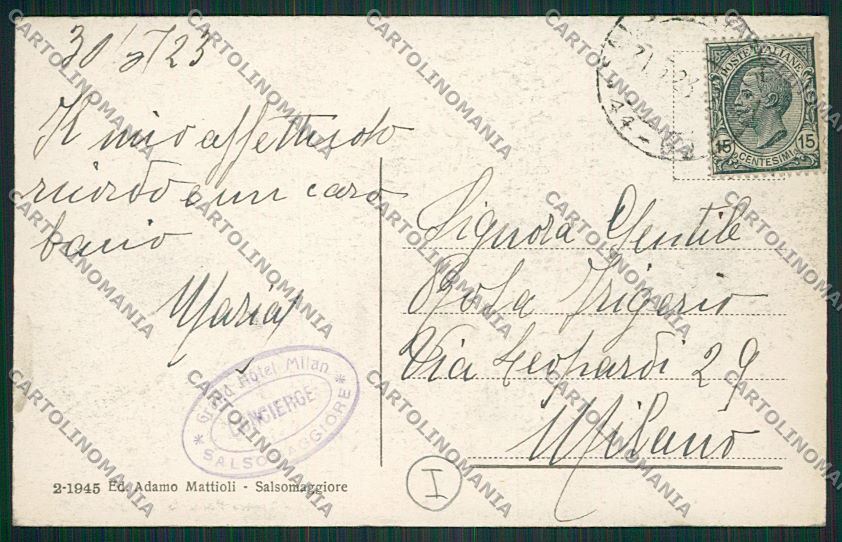 30/5/23
Il mio affettuoso
ricordo e un caro
bacio
Maria
Grand Hôtel Milan
CONCIERGE
SALSOMAGGIORE
2-1945 Ed. Adamo Mattioli - Salsomaggiore
POSTE ITALIANE
15 CENTESIMI 15
Signora Gentile
Rosa Frigerio
Via Leopardi 29
Milano
I
CARTOLINOMANIA